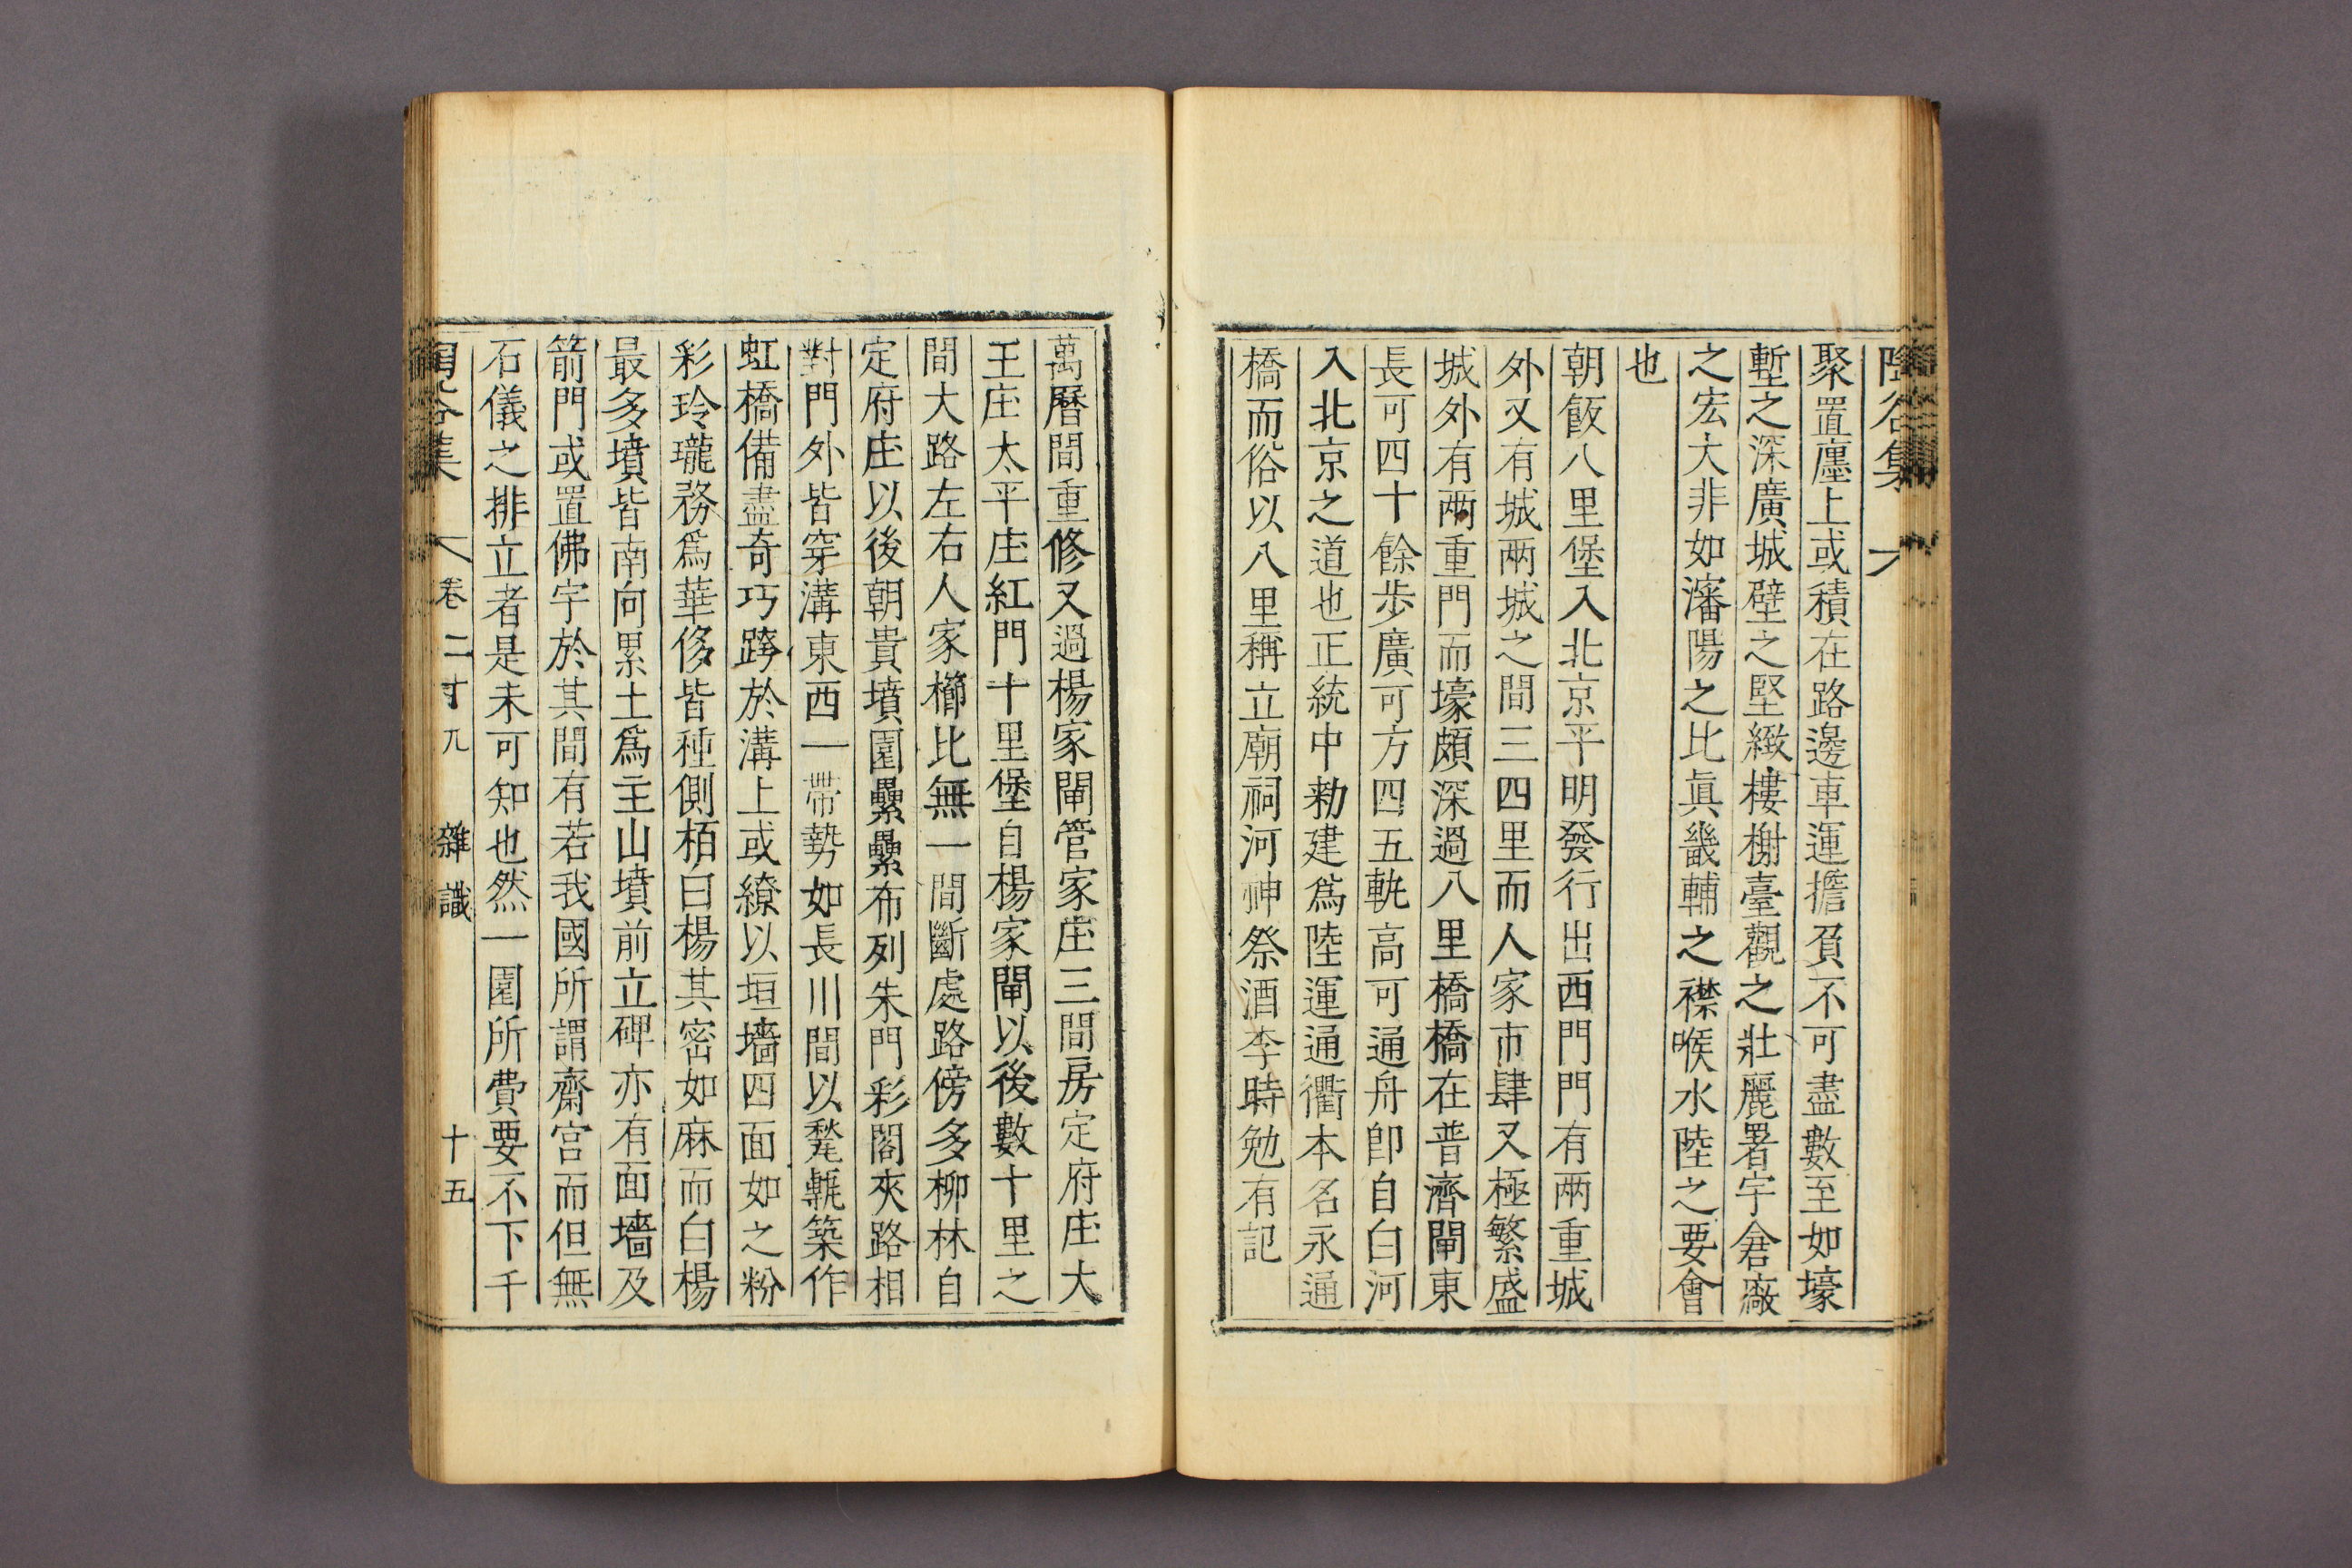 聚置廛上或積在路邊車運擔負不可盡數至如壕
塹之深廣城壁之堅緻樓榭臺觀之壯麗署宇倉廠
之宏大非如瀋陽之比眞畿輔之襟喉水陸之要會
也
朝飯八里堡入北京平明發行出西門門有兩重城
外又有城兩城之間三四里而人家市肆又極繁盛
城外有兩重門而壕頗深過八里橋橋在普濟閘東
長可四十餘步廣可方四五軌高可通舟卽自白河
入北京之道也正統中勑建爲陸運通衢本名永通
橋而俗以八里稱立廟祠河神祭酒李時勉有記
萬曆間重修又過楊家閘管家庄三間房定府庄大
王庄太平庄紅門十里堡自楊家閘以後數十里之
間大路左右人家櫛比無一間斷處路傍多柳林自
定府庄以後朝貴墳園纍纍布列朱門彩閣夾路相
對門外皆穿溝東西一帶勢如長川間以甃甎築作
虹橋備盡奇巧跨於溝上或繚以垣墻四面如之粉
彩玲瓏務爲華侈皆種側栢白楊其密如麻而白楊
最多墳皆南向累土爲主山墳前立碑亦有面墻及
箭門或置佛宇於其間有若我國所謂齋宮而但無
石儀之排立者是未可知也然一園所費要不下千
集 卷二十九 雜識 十五